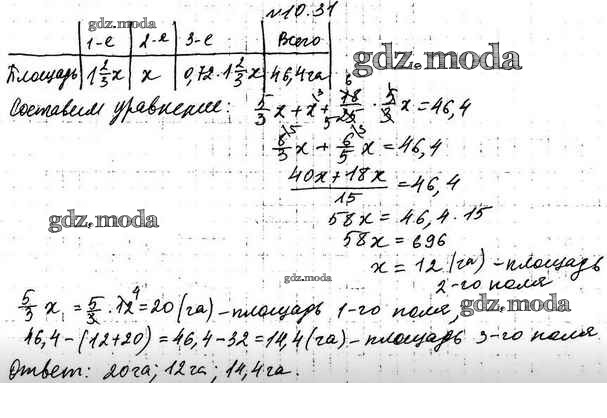 №10.31
gdz.moda
1-е 2-е 3-е Всего
gdz.moda
Площадь 1 2/3 x x 0,72·1 2/3 x 46,4 га
Составим уравнение: 5/3 x + x + 18/25 · 5/3 x = 46,4
8/3 x + 6/5 x = 46,4
(40x+18x)/15 = 46,4
gdz.moda
58x = 46,4·15
58x = 696
x = 12 (га) – площадь
gdz.moda
2-го поля
5/3 x = 5/3 · 12 = 20 (га) – площадь 1-го поля,
gdz.moda
46,4 – (12+20) = 46,4 – 32 = 14,4 (га) – площадь 3-го поля.
Ответ: 20га; 12га; 14,4га.